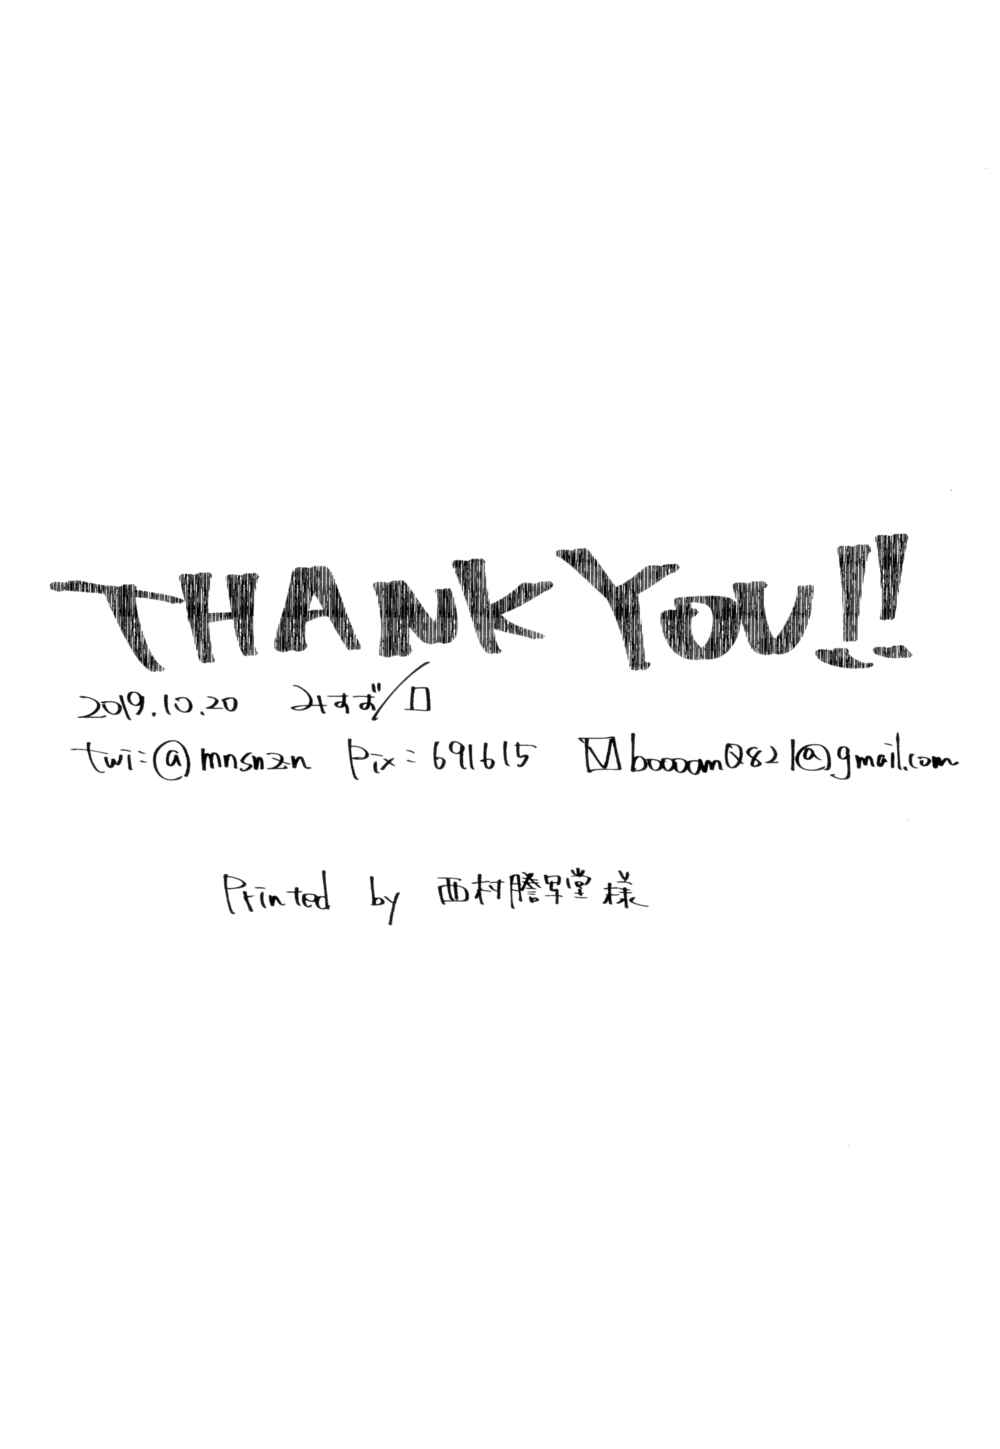 THANK YOU!!
2019.10.20 みすず/口
twi:@mnsnzn Pix:691615 boooom0821@gmail.com
Printed by 西村謄写堂様